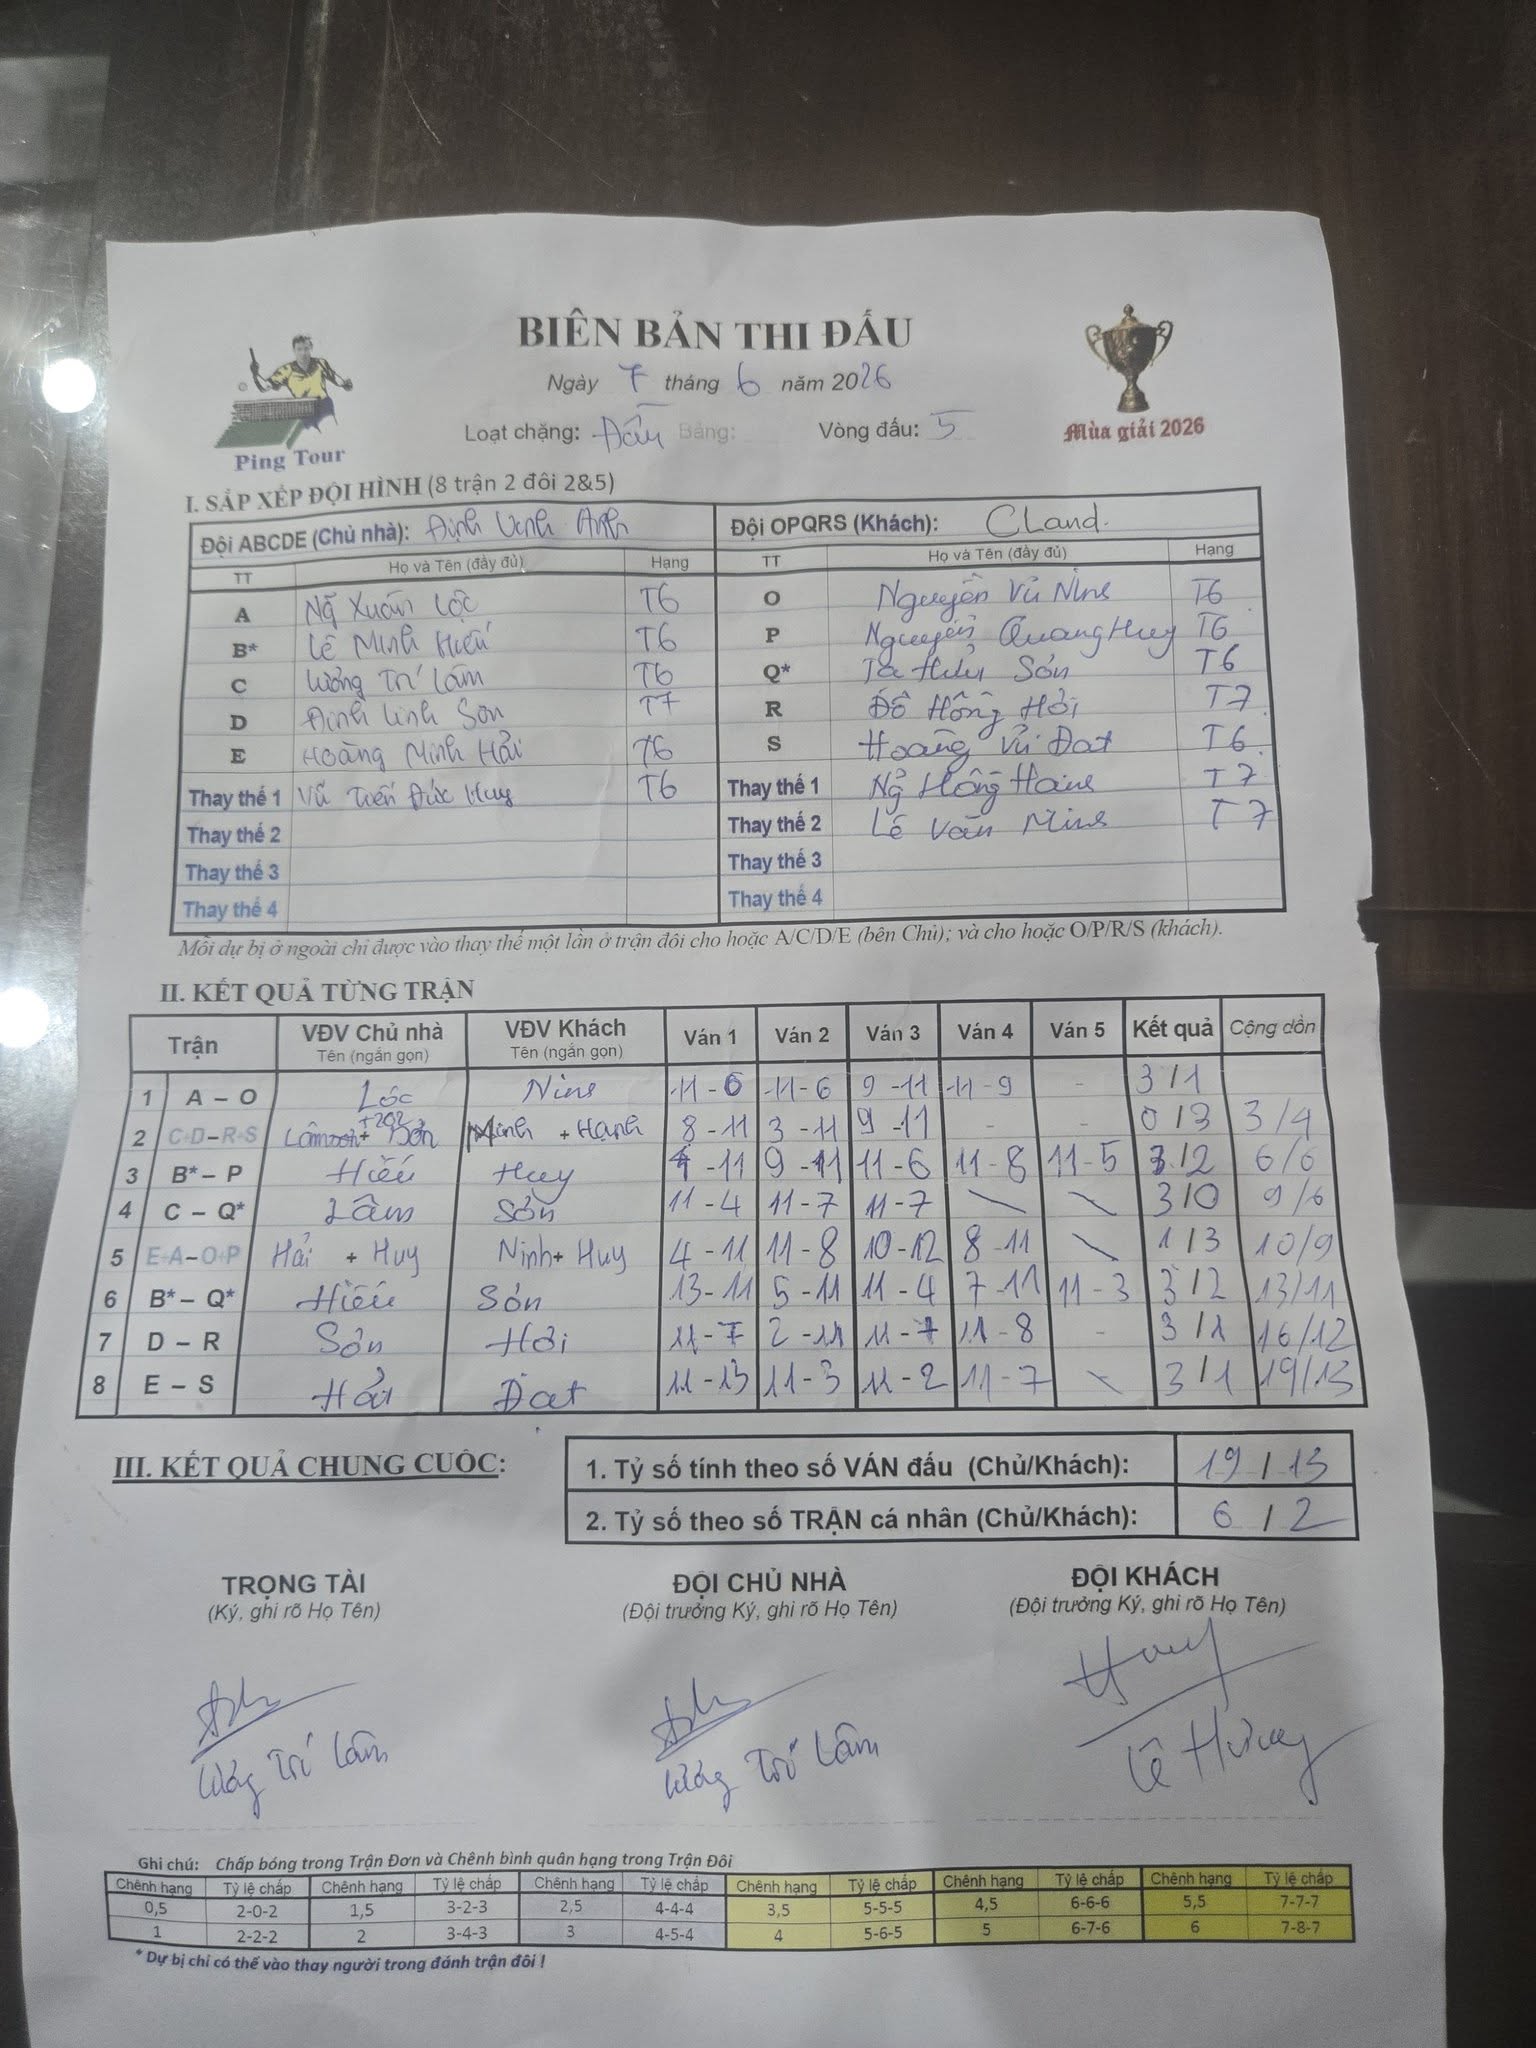 BIÊN BẢN THI ĐẤU
Ngày 7 tháng 6 năm 2026
Loạt chặng: Đấu Bảng: Vòng đấu: 5
Ping Tour
Mùa giải 2026
I. SẮP XẾP ĐỘI HÌNH (8 trận 2 đôi 2&5)
Đội ABCDE (Chủ nhà): Định Linh Anh Đội OPQRS (Khách): CLand.
TT Họ và Tên (đầy đủ) Hạng TT Họ và Tên (đầy đủ) Hạng
A Ng̃ Xuân Lộc T6 O Nguyễn Vũ Ninh T6
B* Lê Minh Hiếu T6 P Nguyễn Quang Huy T6
C Lương Trí Lâm T6 Q* Tạ Hữu Sơn T6
D Đinh Linh Sơn T7 R Đỗ Hồng Hải T7
E Hoàng Minh Hải T6 S Hoàng Vũ Đạt T6
Thay thế 1 Vũ Tiến Đức Huy T6 Thay thế 1 Ng̃ Hồng Hạnh T7
Thay thế 2 Thay thế 2 Lê Văn Minh T7
Thay thế 3 Thay thế 3
Thay thế 4 Thay thế 4
Mỗi dự bị ở ngoài chỉ được vào thay thế một lần ở trận đôi cho hoặc A/C/D/E (bên Chủ); và cho hoặc O/P/R/S (khách).
II. KẾT QUẢ TỪNG TRẬN
Trận VĐV Chủ nhà VĐV Khách Ván 1 Ván 2 Ván 3 Ván 4 Ván 5 Kết quả Cộng dồn
Tên (ngắn gọn) Tên (ngắn gọn)
1 A – O Lộc Ninh 11-6 11-6 9-11 11-9 - 3/1
2 C+D–R+S Lâm + Sơn Minh + Hạnh 8-11 3-11 9-11 - - 0/3 3/4
3 B* – P Hiếu Huy 4-11 9-11 11-6 11-8 11-5 3/2 6/6
4 C – Q* Lâm Sơn 11-4 11-7 11-7 \ \ 3/0 9/6
5 E+A–O+P Hải + Huy Ninh + Huy 4-11 11-8 10-12 8-11 \ 1/3 10/9
6 B* – Q* Hiếu Sơn 13-11 5-11 11-4 7-11 11-3 3/2 13/11
7 D – R Sơn Hải 11-7 2-11 11-7 11-8 - 3/1 16/12
8 E – S Hải Đạt 11-13 11-3 11-2 11-7 \ 3/1 19/13
III. KẾT QUẢ CHUNG CUỘC:
1. Tỷ số tính theo số VÁN đấu (Chủ/Khách): 19 / 13
2. Tỷ số theo số TRẬN cá nhân (Chủ/Khách): 6 / 2
TRỌNG TÀI ĐỘI CHỦ NHÀ ĐỘI KHÁCH
(Ký, ghi rõ Họ Tên) (Đội trưởng Ký, ghi rõ Họ Tên) (Đội trưởng Ký, ghi rõ Họ Tên)
Lương Trí Lâm Lương Trí Lâm Lê
Ghi chú: Chấp bóng trong Trận Đơn và Chênh bình quân hạng trong Trận Đôi
Chênh hạng Tỷ lệ chấp Chênh hạng Tỷ lệ chấp Chênh hạng Tỷ lệ chấp Chênh hạng Tỷ lệ chấp Chênh hạng Tỷ lệ chấp Chênh hạng Tỷ lệ chấp
0,5 2-0-2 1,5 3-2-3 2,5 4-4-4 3,5 5-5-5 4,5 6-6-6 5,5 7-7-7
1 2-2-2 2 3-4-3 3 4-5-4 4 5-6-5 5 6-7-6 6 7-8-7
* Dự bị chỉ có thể vào thay người trong đánh trận đôi !